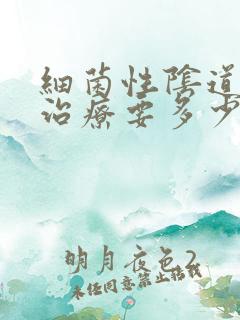 細菌性陰道
治療要多少
明月夜色2
未任同意禁止格載